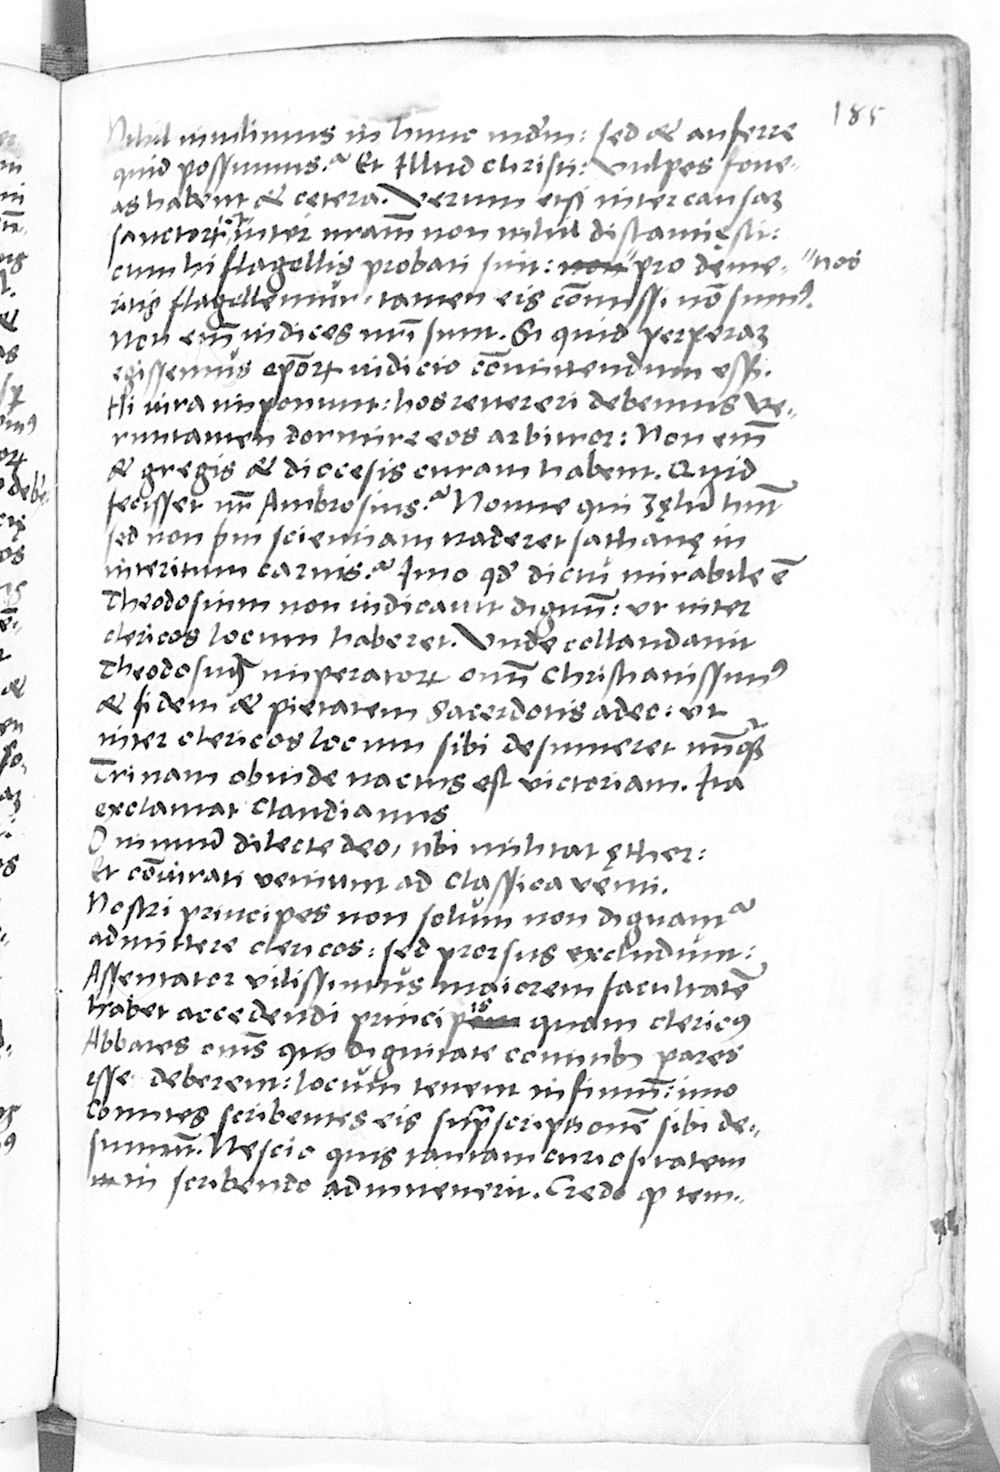 185
Nihil intulimus in hunc mdm̄: sed & auferre
quid possumus? Et Illud christi: Vulpes foue-
as habent & cętera. Verum etsi inter causaʒ
sanctorꝝ & inter nr̄am non nihil distantię sit:
cum hi flagellis probati sint: non pro deme- "nos
ritis flagellemur. tamen eis com̄issi nō sumꝰ.
Non em̄ iudices nr̄i sunt. Si quid perperaʒ
egissemus ep̄orꝝ iudicio com̄ittendum esset.
Hi iura imponunt: hos reuereri debemus Ve-
runtamen dormire eos arbitror: Non em̄
& gregis & diocesis curam habent. Quid
fecisset nr̄ Ambrosius? Nonne qui zęlū hn̄t
sed non s̄m scientiam traderet sathanę in
interitum carnis? Imo qd̄ dictu mirabile ē
Theodosium non iudicauit dignum̄: ut inter
clericos locum haberet. Unde collaudauit
Theodosius imperatorꝝ om̄n Christianissimꝰ
& fidem & pietatem Sacerdotis adeo: ut
inter clericos locum sibi desumeret nūnqꝫ
Trinam obinde nactus est victoriam. Ita
exclamat Claudianus
O nimiū dilecte deo, tibi militat ęther:
Et cōniurati veniunt ad classica venti.
Nostri principes non solum non dignant
admittere clericos: sed prorsus excludunt:
Assentator vilissimus maiorem facultatē
habet accedendi principis quam clericꝰ
Abbates om̄s qui dignitate comitibꝰ pares
esse deberent: locum tenent infimum̄: imo
Comites scribentes eis suprascriptionē sibi de-
sumunt̄. Nescio quis tantam curiositatem
in scribendo adinuenerit. Credo qꝫ tem-